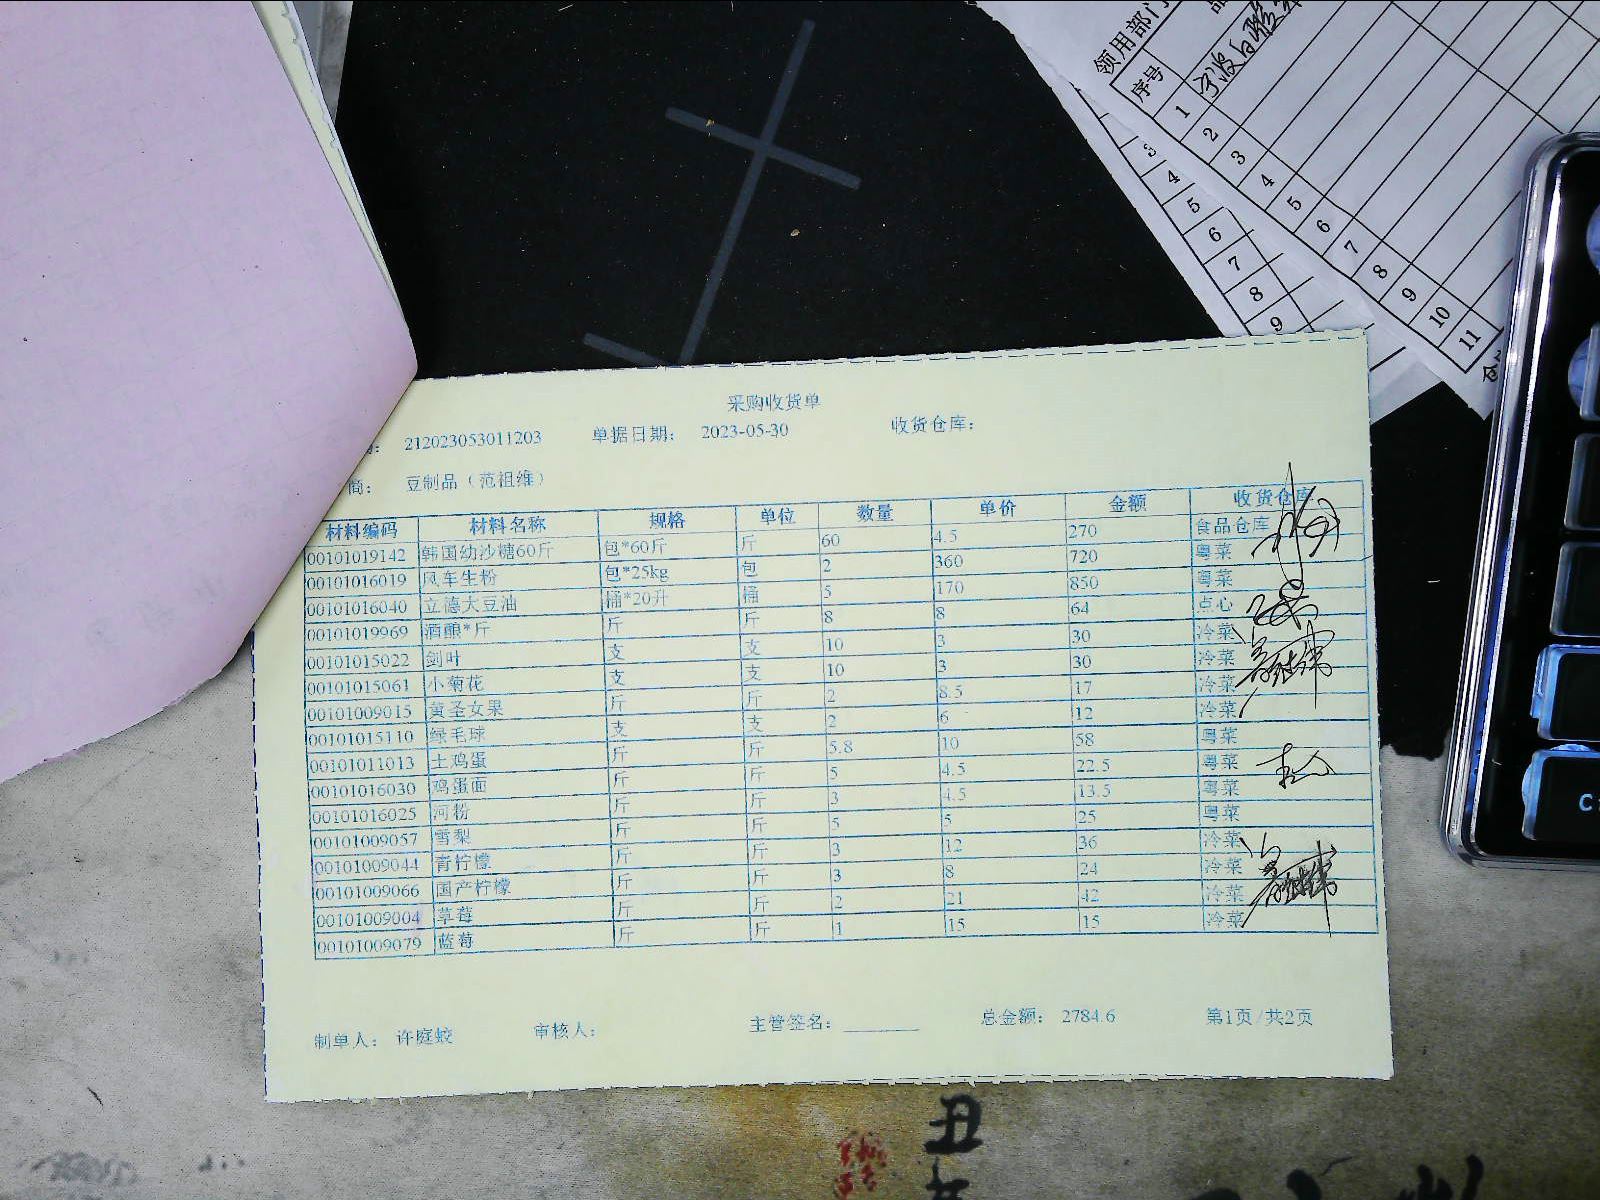 领用部门
序号
1
2
3
4
5
6
7
8
9
10
11
3
4
5
6
7
8
9
采购收货单
212023053011203 单据日期: 2023-05-30 收货仓库:
商: 豆制品（范祖维）
材料编码 材料名称 规格 单位 数量 单价 金额 收货仓库
00101019142 韩国幼沙糖60斤 包*60斤 斤 60 4.5 270 食品仓库
00101016019 风车生粉 包*25kg 包 2 360 720 粤菜
00101016040 立德大豆油 桶*20升 桶 5 170 850 粤菜
00101019969 酒酿*斤 斤 斤 8 8 64 点心
00101015022 剑叶 支 支 10 3 30 冷菜
00101015061 小菊花 支 支 10 3 30 冷菜
00101009015 黄圣女果 斤 斤 2 8.5 17 冷菜
00101015110 绿毛球 支 支 2 6 12 冷菜
00101011013 土鸡蛋 斤 斤 5.8 10 58 粤菜
00101016030 鸡蛋面 斤 斤 5 4.5 22.5 粤菜
00101016025 河粉 斤 斤 3 4.5 13.5 粤菜
00101009057 雪梨 斤 斤 5 5 25 粤菜
00101009044 青柠檬 斤 斤 3 12 36 冷菜
00101009066 国产柠檬 斤 斤 3 8 24 冷菜
00101009004 草莓 斤 斤 2 21 42 冷菜
00101009079 蓝莓 斤 斤 1 15 15 冷菜
制单人: 许庭蛟 审核人: 主管签名: 总金额: 2784.6 第1页/共2页
丑